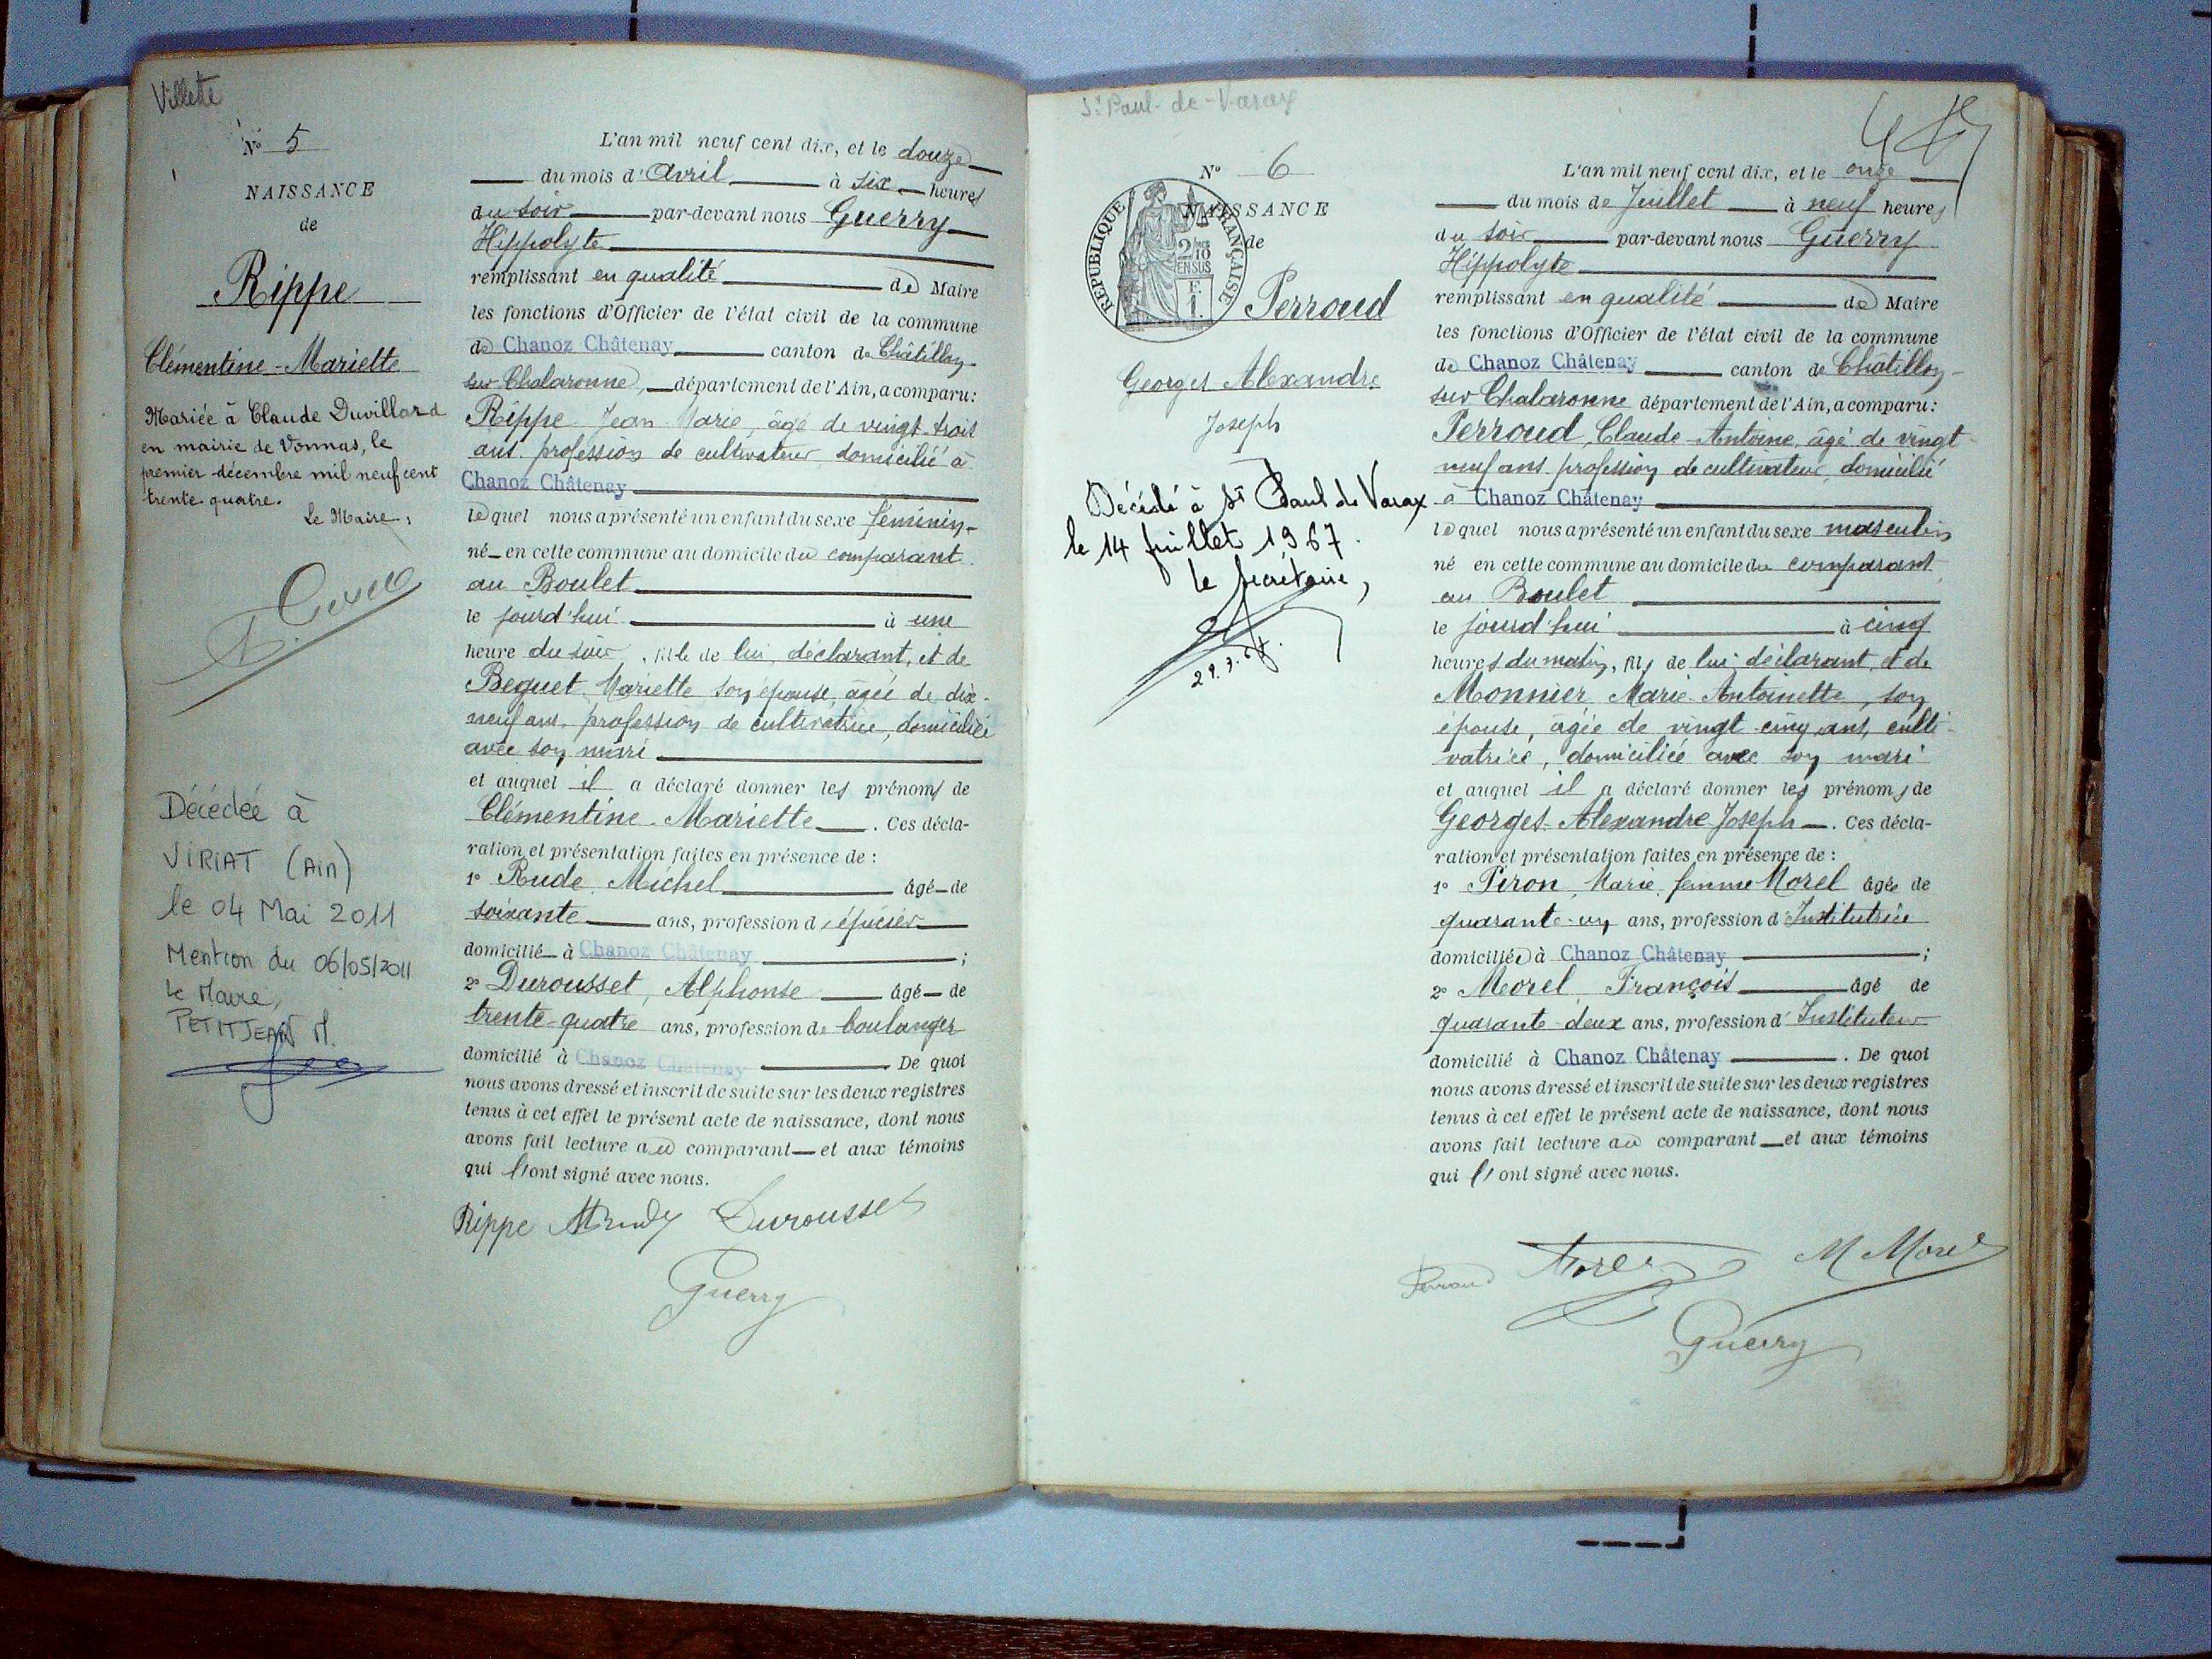 Villette
N° 5
NAISSANCE
de
Rippe
Clémentine-Mariette
Mariée à Claude Duvillard
en mairie de Vonnas, le
premier décembre mil neuf cent
trente quatre.
Le Maire,
Décédée à
VIRIAT (Ain)
le 04 Mai 2011
Mention du 06/05/2011
Le Maire,
PETITJEAN M.
L'an mil neuf cent dix, et le douze
du mois d'Avril à six heures
du soir par-devant nous Guerry
Hippolyte
remplissant en qualité de Maire
les fonctions d'Officier de l'état civil de la commune
de Chanoz Châtenay canton de Châtillon-
sur-Chalaronne, département de l'Ain, a comparu:
Rippe Jean Marie, âgé de vingt-trois
ans. profession de cultivateur, domicilié à
Chanoz Châtenay
lequel nous a présenté un enfant du sexe féminin
né en cette commune au domicile du comparant
au Boulet
le jourd'hui à une
heure du soir, fille de lui, déclarant, et de
Beguet Mariette son épouse, âgée de dix-
neuf ans, profession de cultivatrice, domiciliée
avec son mari
et auquel il a déclaré donner les prénoms de
Clémentine-Mariette. Ces décla-
ration et présentation faites en présence de :
1° Rude Michel âgé de
soixante ans, profession d'épicier
domicilié à Chanoz Châtenay ;
2° Durousset, Alphonse âgé de
trente-quatre ans, profession de boulanger
domicilié à Chanoz Châtenay. De quoi
nous avons dressé et inscrit de suite sur les deux registres
tenus à cet effet le présent acte de naissance, dont nous
avons fait lecture au comparant et aux témoins
qui l'ont signé avec nous.
Rippe Durousset
Guerry
St Paul-de-Varax
N° 6
NAISSANCE
de
REPUBLIQUE FRANÇAISE
2/10
EN SUS
F.
1.
Perroud
Georges Alexandre
Joseph
Décédé à St Paul de Varax
le 14 juillet 1967.
Le Secrétaire,
L'an mil neuf cent dix, et le onze
du mois de Juillet à neuf heures
du soir par-devant nous Guerry
Hippolyte
remplissant en qualité de Maire
les fonctions d'Officier de l'état civil de la commune
de Chanoz Châtenay canton de Châtillon-
sur Chalaronne département de l'Ain, a comparu:
Perroud, Claude-Antoine, âgé de vingt
neuf ans profession de cultivateur, domicilié
à Chanoz Châtenay
lequel nous a présenté un enfant du sexe masculin
né en cette commune au domicile du comparant
au Boulet
le jourd'hui à cinq
heures du matin, fils de lui déclarant, et de
Monnier Marie-Antoinette, son
épouse, âgée de vingt-cinq ans, culti-
vatrice, domiciliée avec son mari
et auquel il a déclaré donner les prénoms de
Georges-Alexandre Joseph. Ces décla-
ration et présentation faites en présence de :
1° Piron Marie, femme Morel âgée de
quarante-un ans, profession d'Institutrice
domiciliée à Chanoz Châtenay ;
2° Morel François âgé de
quarante-deux ans, profession d'Instituteur
domicilié à Chanoz Châtenay. De quoi
nous avons dressé et inscrit de suite sur les deux registres
tenus à cet effet le présent acte de naissance, dont nous
avons fait lecture au comparant et aux témoins
qui l'ont signé avec nous.
Perroud Morel M Morel
Guerry